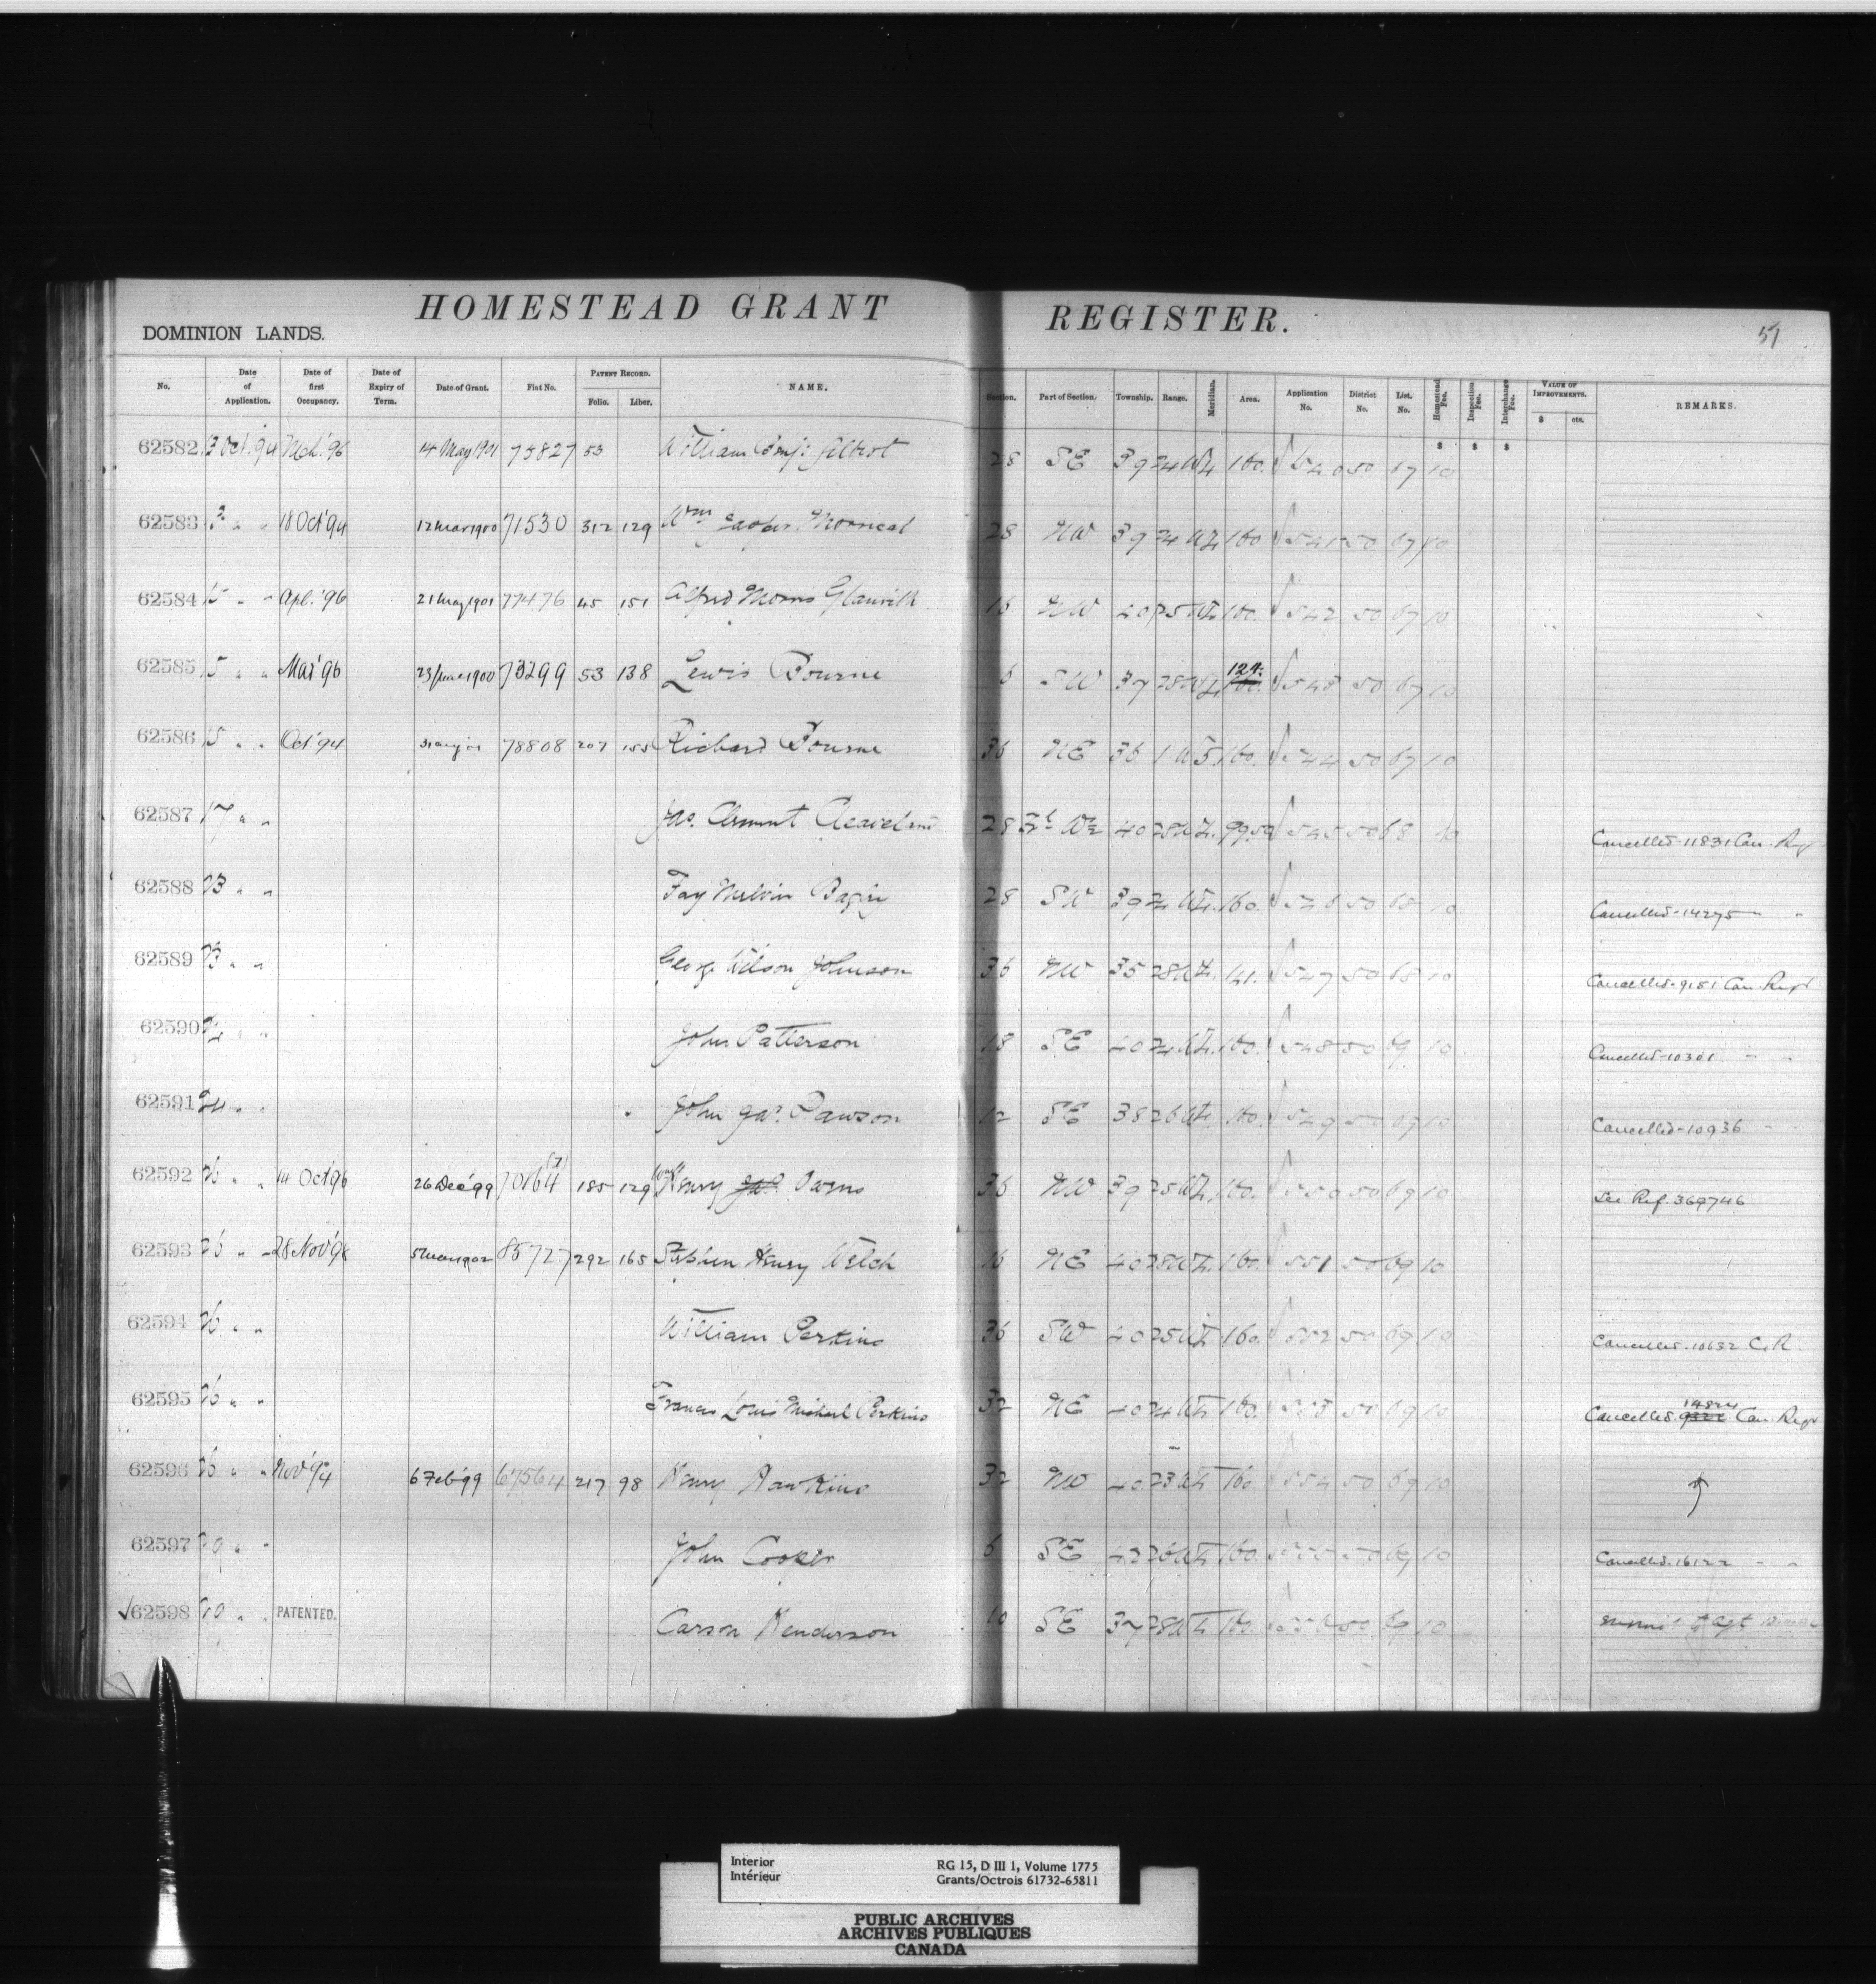 HOMESTEAD GRANT REGISTER.
51
DOMINION LANDS.
No. Date of Application. Date of first Occupancy. Date of Expiry of Term. Date of Grant. Fiat No. PATENT RECORD. Folio. Liber. NAME. Section. Part of Section. Township. Range. Meridian. Area. Application No. District No. List. No. Homestead Fee. Inspection Fee. Interchange Fee. VALUE OF IMPROVEMENTS. $ cts. REMARKS.
$ $ $
62582 13 Oct. 94 Mch. '96 14 May 1901 53 William Benj: Gilbert 28 SE 39 24 W4 160. 540 50 67 10
62583 " " 18 Oct '94 12 Mar 1900 71530 312 129 Wm Jasper 28 NW 39 24 W4 160 541 50 67 10
62584 15 " " Apl. '96 21 May 1901 77476 45 151 Alfred Morris 16 NW 40 25 W4 160. 542 50 67 10
62585 15 " " Mar '96 23 June 1900 73299 53 138 Lewis Bourne 6 SW 37 28 W4 124. 160. 543 50 67 10
62586 15 " " Oct '94 31 Aug '01 78808 207 155 Richard Bourne 36 NE 36 1 W5 160. 544 50 67 10
62587 17 " " Jas. Clement Cleaveland 28 40 28 W4. 99.50 545 50 68 10 Cancelled - 11831 Can. Regr
62588 23 " " Fay Melvin Bagley 28 SW 39 24 W4. 160. 546 50 68 10 Cancelled - 14275 " "
62589 23 " " George Wilson Johnson 36 NW 35 28 W4. 141. 547 50 68 10 Cancelled - 9151 Can. Regr
62590 24 " " John Patterson 18 SE 40 24 W4. 160. 548 50 69 10 Cancelled - 10301 " "
62591 24 " " John Jas. Pawson 12 SE 38 26 W4 160. 549 50 69 10 Cancelled - 10936 " "
62592 26 " " 14 Oct '96 26 Dec '99 70164 185 129 Henry Jas. Owens 36 NW 39 25 W4 160. 550 50 69 10 See Ref. 369746
62593 26 " " 28 Nov '98 5 Mar 1902 292 165 Stephen Henry Welch 16 NE 40 28 W4. 160. 551 50 69 10
62594 26 " " William Perkins 36 SW 40 25 W4 160. 552 50 69 10 Cancelled - 10632 C. R.
62595 26 " " Francis Louis Michael Perkins 32 NE 40 24 W4 160. 553 50 69 10 Cancelled. 14824 Can. Regr
62596 26 " " Nov '94 6 Feb '99 67564 217 98 Henry Hawkins 32 NW 40 23 W4 160 554 50 69 10
62597 " " John Cooper 6 SE 42 26 W4 160. 555 50 69 10 Cancelled. 16122 " "
√62598 " " PATENTED. Carson Henderson 10 SE 37 28 W4 160. 556 50 69 10
Interior RG 15, D III 1, Volume 1775
Intérieur Grants/Octrois 61732-65811
PUBLIC ARCHIVES
ARCHIVES PUBLIQUES
CANADA